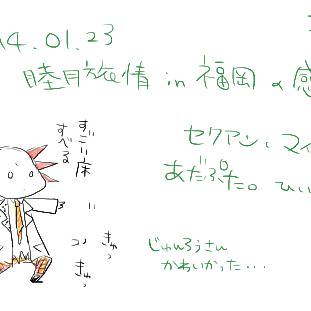 4.01.23
睦月旅情 in 福岡 の感
セクアン、マイ
あだぷた。ひい
すごい床
すべる
きゅっ
きゅっ
じゅんろうさん
かわいかった・・・